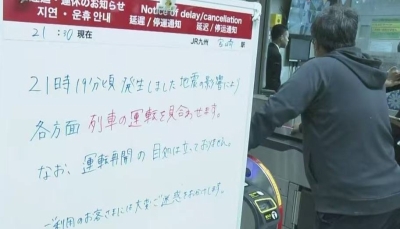 遅延・運休のお知らせ Notice of delay/cancellation
지연・운휴 안내 延迟/停运通知 延遲/停運通知
21:30 現在 JR九州 宮崎 駅
21時19分頃 発生しました地震の影響により
各方面 列車の運転を見合わせます。
なお、運転再開の目処は立っておりません。
ご利用のお客さまには大変ご迷惑をおかけします。